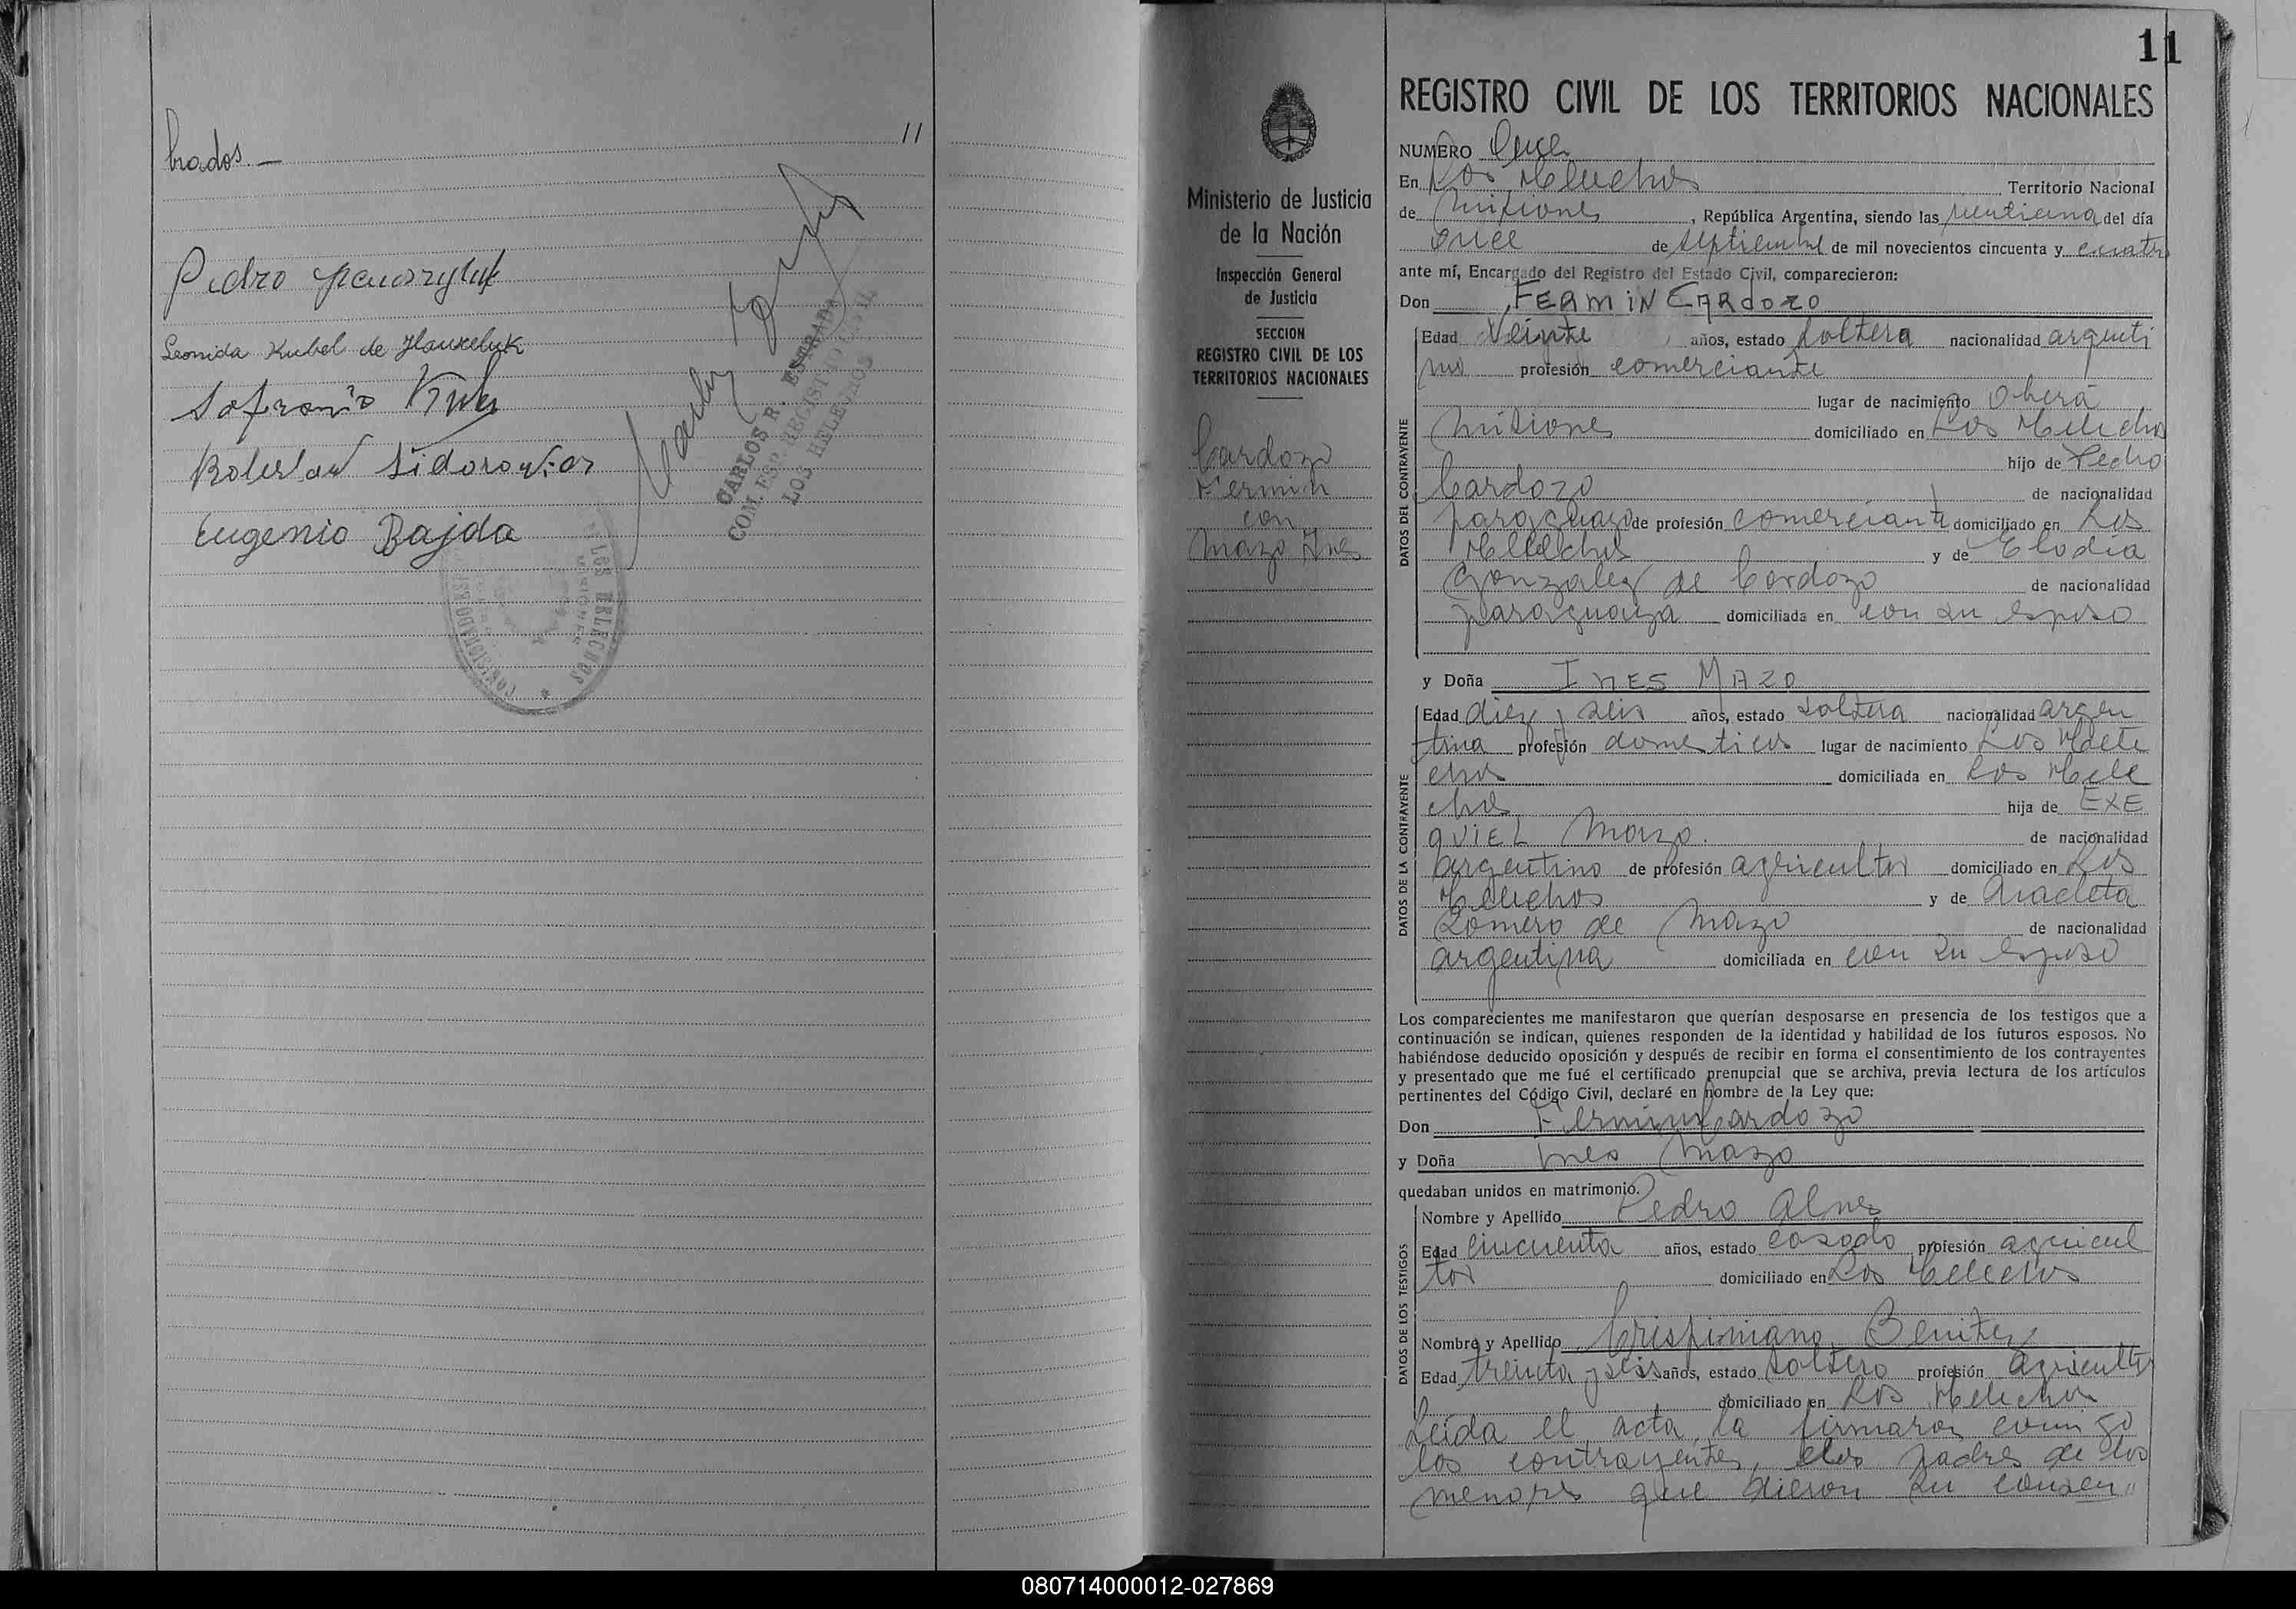 brados. —
11
Pedro
Leonida Kubel de Hauxeluk
Sofronio
Boleslaw Sidorowicz
Eugenio Bajda
CARLOS R. ESTRADA
COM. ESP. REGISTRO CIVIL
LOS HELECHOS
LOS HELECHOS
MISIONES
11
REGISTRO CIVIL DE LOS TERRITORIOS NACIONALES
Ministerio de Justicia
de la Nación
Inspección General
de Justicia
SECCION
REGISTRO CIVIL DE LOS
TERRITORIOS NACIONALES
Cardozo
Fermin
con
Mazo Ines
NUMERO Once
En Los Helechos Territorio Nacional
de Misiones, República Argentina, siendo las ventiuna del día
once de septiembre de mil novecientos cincuenta y cuatro
ante mí, Encargado del Registro del Estado Civil, comparecieron:
Don FERMIN CARDOZO
DATOS DEL CONTRAYENTE
Edad Veinte años, estado soltero nacionalidad argenti
no profesión comerciante
lugar de nacimiento Oberá
Misiones domiciliado en Los Helechos
hijo de Pedro
Cardozo de nacionalidad
paraguayo de profesión comerciante domiciliado en Los
Helechos y de Elodia
Gonzalez de Cardozo de nacionalidad
paraguaya domiciliada en con su esposo
y Doña INES MAZO
DATOS DE LA CONTRAYENTE
Edad diez y seis años, estado soltera nacionalidad argen
tina profesión domesticos lugar de nacimiento Los Hele
chos domiciliada en Los Hele
chos hija de EXE
QUIEL Mazo. de nacionalidad
argentino de profesión agricultor domiciliado en Los
Helechos y de Anacleta
Romero de Mazo de nacionalidad
argentina domiciliada en con su esposo
Los comparecientes me manifestaron que querían desposarse en presencia de los testigos que a
continuación se indican, quienes responden de la identidad y habilidad de los futuros esposos. No
habiéndose deducido oposición y después de recibir en forma el consentimiento de los contrayentes
y presentado que me fué el certificado prenupcial que se archiva, previa lectura de los artículos
pertinentes del Código Civil, declaré en nombre de la Ley que:
Don Fermin Cardozo
y Doña Ines Mazo
quedaban unidos en matrimonio.
DATOS DE LOS TESTIGOS
Nombre y Apellido Pedro Alves
Edad cincuenta años, estado casado profesión agricul
tor domiciliado en Los Helechos
Nombre y Apellido Crispiniano Benitez
Edad treinta y seis años, estado soltero profesión agricultor
domiciliado en Los Helechos
Leída el acta, la firmaron conmigo
los contrayentes, los padres de los
menores que dieron su consen"
080714000012-027869